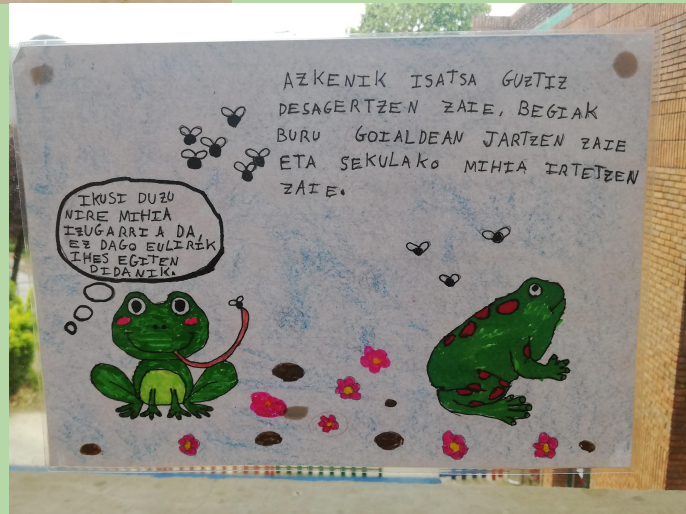 AZKENIK ISATSA GUZTIZ
DESAGERTZEN ZAIE, BEGIAK
BURU GOIALDEAN JARTZEN ZAIE
ETA SEKULAKO MIHIA IRTETZEN
ZAIE.
IKUSI DUZU
NIRE MIHIA
IZUGARRI A DA,
EZ DAGO EULIRIK
IHES EGITEN
DIDANIK.